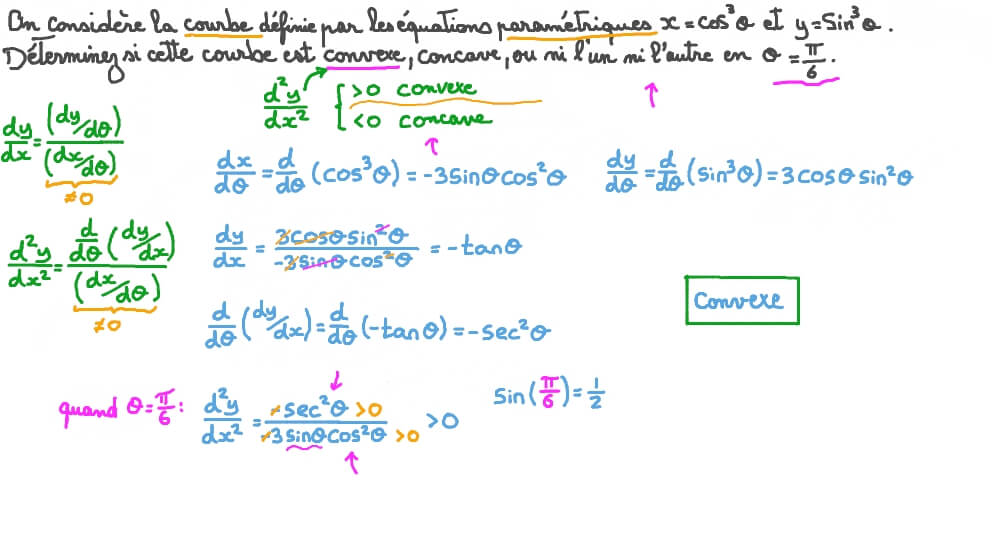 On considère la courbe définie par les équations paramétriques x = cos³θ et y = sin³θ.
Déterminez si cette courbe est convexe, concave, ou ni l'un ni l'autre en θ = π/6.
d²y/dx² { >0 convexe
<0 concave
dy/dx = (dy/dθ)/(dx/dθ)
≠0
dx/dθ = d/dθ (cos³θ) = -3sinθcos²θ
dy/dθ = d/dθ (sin³θ) = 3cosθsin²θ
d²y/dx² = d/dθ (dy/dx)/(dx/dθ)
≠0
dy/dx = 3cosθsin²θ/-3sinθcos²θ = -tanθ
d/dθ (dy/dx) = d/dθ (-tanθ) = -sec²θ
Convexe
quand θ = π/6 : d²y/dx² = -sec²θ >0/-3sinθcos²θ >0 >0
sin(π/6) = 1/2